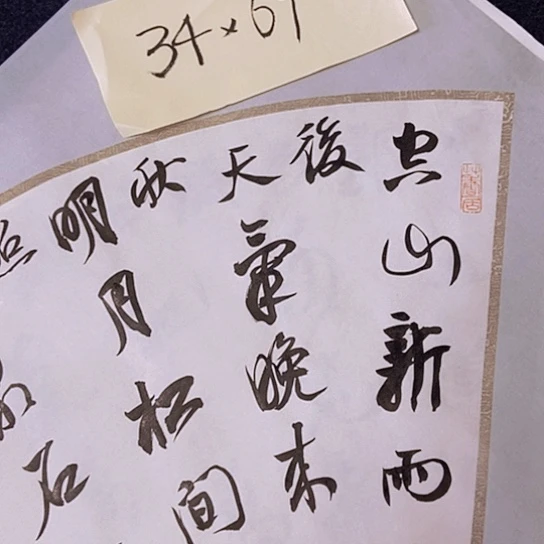 34×67
空山新雨
後
天氣晚来
秋
明月松間
照
泉石